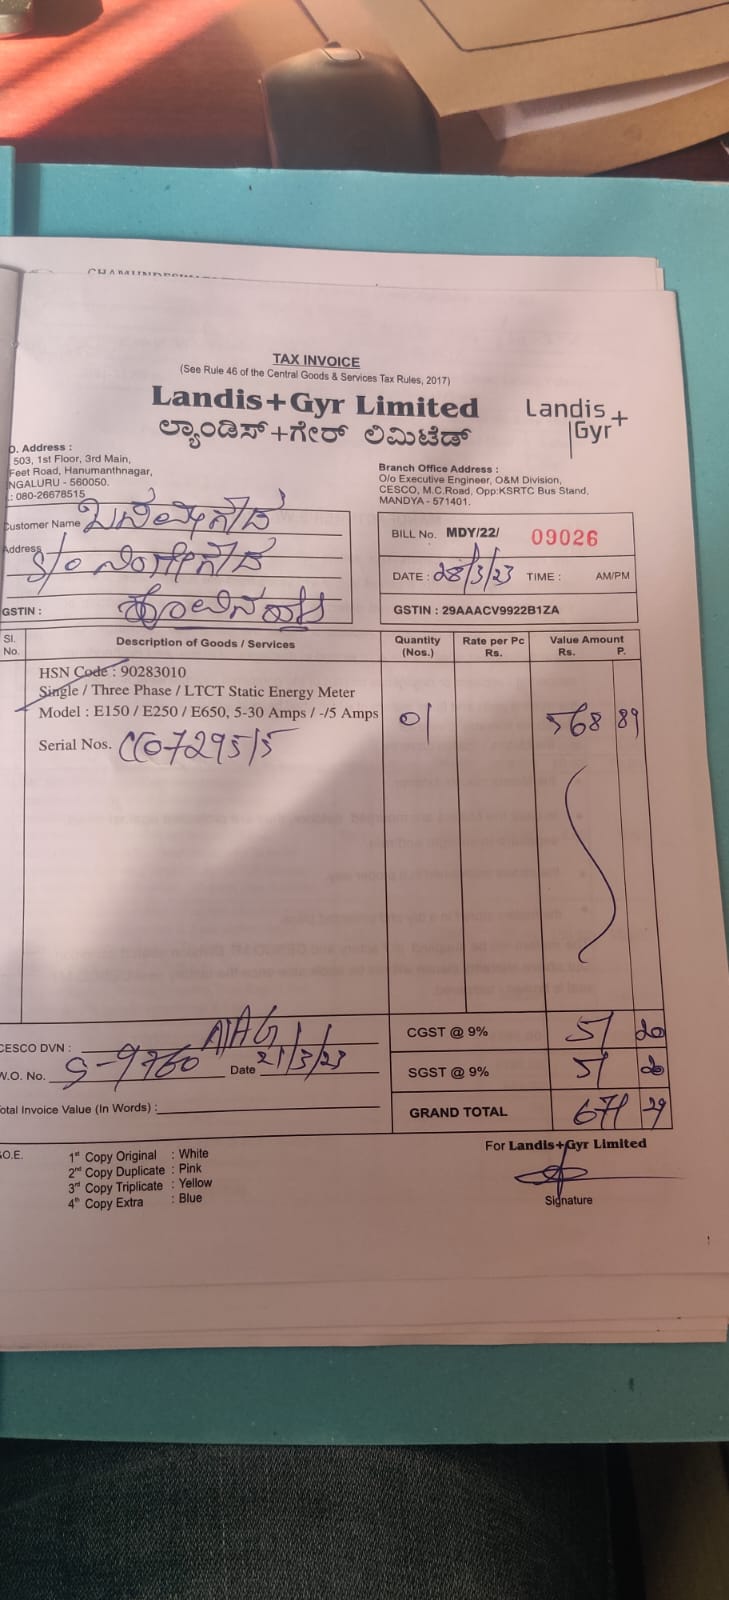 TAX INVOICE
(See Rule 46 of the Central Goods & Services Tax Rules, 2017)
Landis+Gyr Limited
ಲ್ಯಾಂಡಿಸ್+ಗೇರ್ ಲಿಮಿಟೆಡ್
Landis+
Gyr
O. Address :
503, 1st Floor, 3rd Main,
Feet Road, Hanumanthnagar,
NGALURU - 560050.
.: 080-26678515
Branch Office Address :
O/o Executive Engineer, O&M Division,
CESCO, M.C.Road, Opp:KSRTC Bus Stand,
MANDYA - 571401.
Customer Name
Address S/o
GSTIN :
BILL No. MDY/22/ 09026
DATE : 28/3/23 TIME : AM/PM
GSTIN : 29AAACV9922B1ZA
Sl. No. Description of Goods / Services Quantity (Nos.) Rate per Pc Rs. Value Amount Rs. P.
HSN Code : 90283010
Single / Three Phase / LTCT Static Energy Meter
Model : E150 / E250 / E650, 5-30 Amps / -/5 Amps 01 568 89
Serial Nos.
CESCO DVN :
CGST @ 9% 51 20
W.O. No. S-9760 Date 21/3/23
SGST @ 9% 51 20
Total Invoice Value (In Words) :
GRAND TOTAL 671 29
.O.E.
1st Copy Original : White
2nd Copy Duplicate : Pink
3rd Copy Triplicate : Yellow
4th Copy Extra : Blue
For Landis+Gyr Limited
Signature